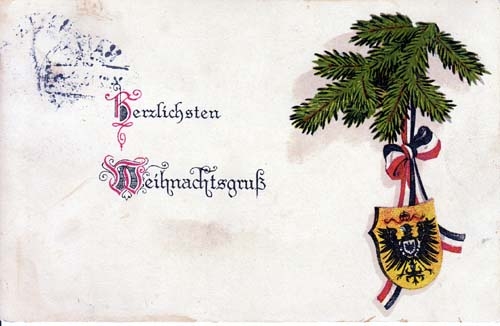 Herzlichsten
Weihnachtsgruß